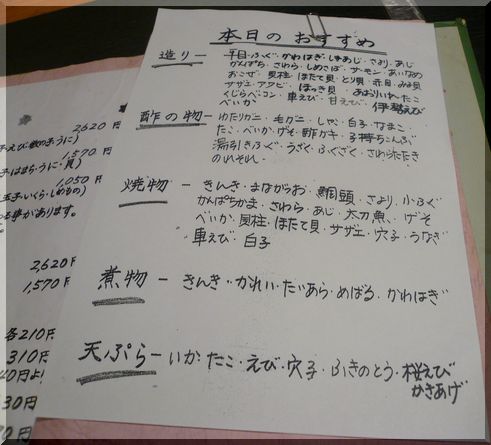 本日のおすすめ
造り — 平目・ふぐ・かわはぎ・しまあじ・さより・あじ
かんぱち・さわら・しめさば・サーモン・あいなめ
おこぜ・貝柱・ほたて貝・とり貝・赤貝・みる貝
サザエ・アワビ・ほっき貝・あおりいか・たこ
くじらベーコン・車えび・甘えび・伊勢えび
べいか
酢の物 — ゆたりカニ・毛ガニ・しゃこ・白子・なまこ・
たこ・べいか・げそ・酢カキ・子持ちこんぶ
湯引きふぐ・うざく・ふぐざく・さわたたき
のれそれ
焼物 — きんき・まながつお・鯛頭・さより・小ふぐ
かんぱちかま・さわら・あじ・太刀魚・げそ
べいか・貝柱・ほたて貝・サザエ・穴子・うなぎ
車えび・白子
煮物 — きんき・かれい・たいあら・めばる・かわはぎ
天ぷら — いか・たこ・えび・穴子・ふきのとう・桜えび
かきあげ
2,620円
1,570円
1,050円
る事があります。
2,620円
1,570円
各210円
310円
30円